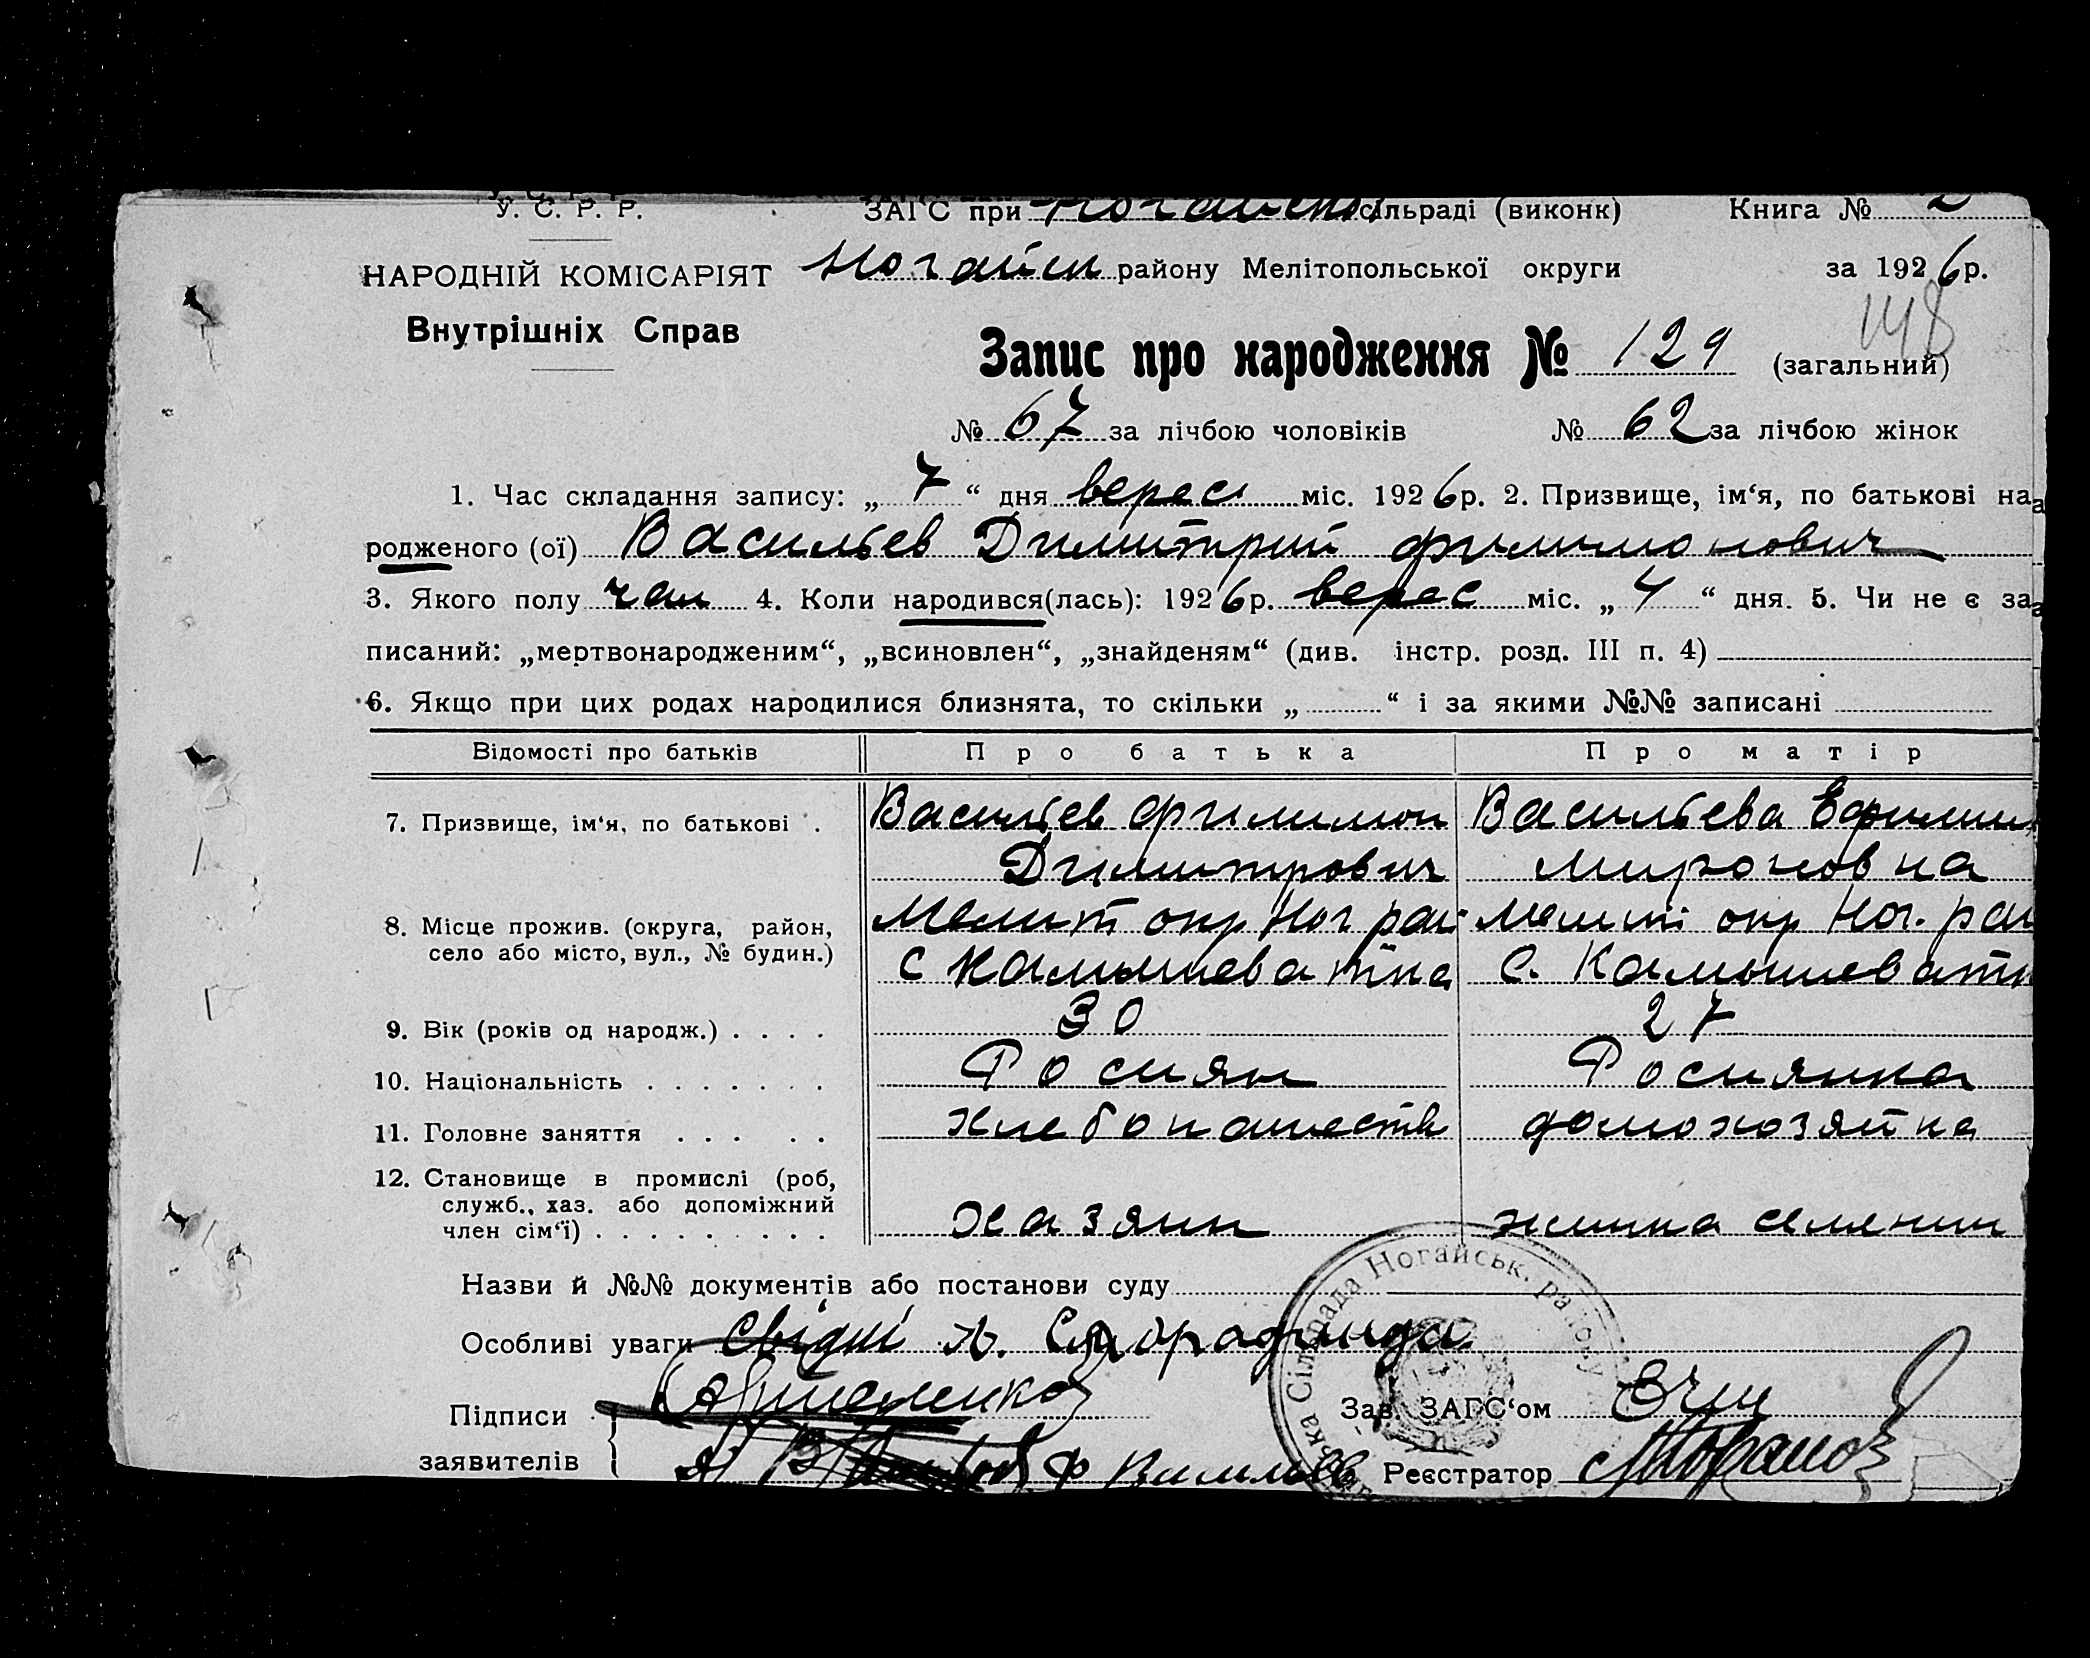 У. С. Р. Р. ЗАГС при Ногайські сільраді (виконк) Книга № 2
НАРОДНІЙ КОМІСАРІЯТ Ногайск району Мелітопольської округи за 1926 р.
Внутрішніх Справ
148
Запис про народження № 129 (загальний)
№ 67 за лічбою чоловіків № 62 за лічбою жінок
1. Час складання запису: „ 7 “ дня верес міс. 1926 р. 2. Призвище, ім‘я, по батькові на
родженого (ої) Васильев Димитрий Филимонович
3. Якого полу чол 4. Коли народився(лась): 1926 р. верес міс. „ 4 “ дня. 5. Чи не є за
писаний: „мертвонародженим“, „всиновлен“, „знайденям“ (див. інстр. розд. III п. 4)
6. Якщо при цих родах народилися близнята, то скільки „ “ і за якими №№ записані
Відомості про батьків Про батька Про матір
7. Призвище, ім‘я, по батькові . Васильев Филимон Васильева Ефимия
Димитрович Мироновна
8. Місце прожив. (округа, район, Мелит окр Ног рай Мелит окр Ног. рай
село або місто, вул., № будин.) с Камышеватка с. Камышеватк
9. Вік (років од народж.) . . . . 30 27
10. Національність . . . . . . . Росиян Росиянка
11. Головне заняття . . . . . хлебопашеств домохозяйка
12. Становище в промислі (роб,
служб., хаз. або допоміжний хазяин жинка селянин
член сім‘ї) . . . . . . . . .
Назви й №№ документів або постанови суду
Особливі уваги Свідкі
Підписи Зав. ЗАГС‘ом
заявителів Ф Васильев Реєстратор
Сільрада Ногайськ. району